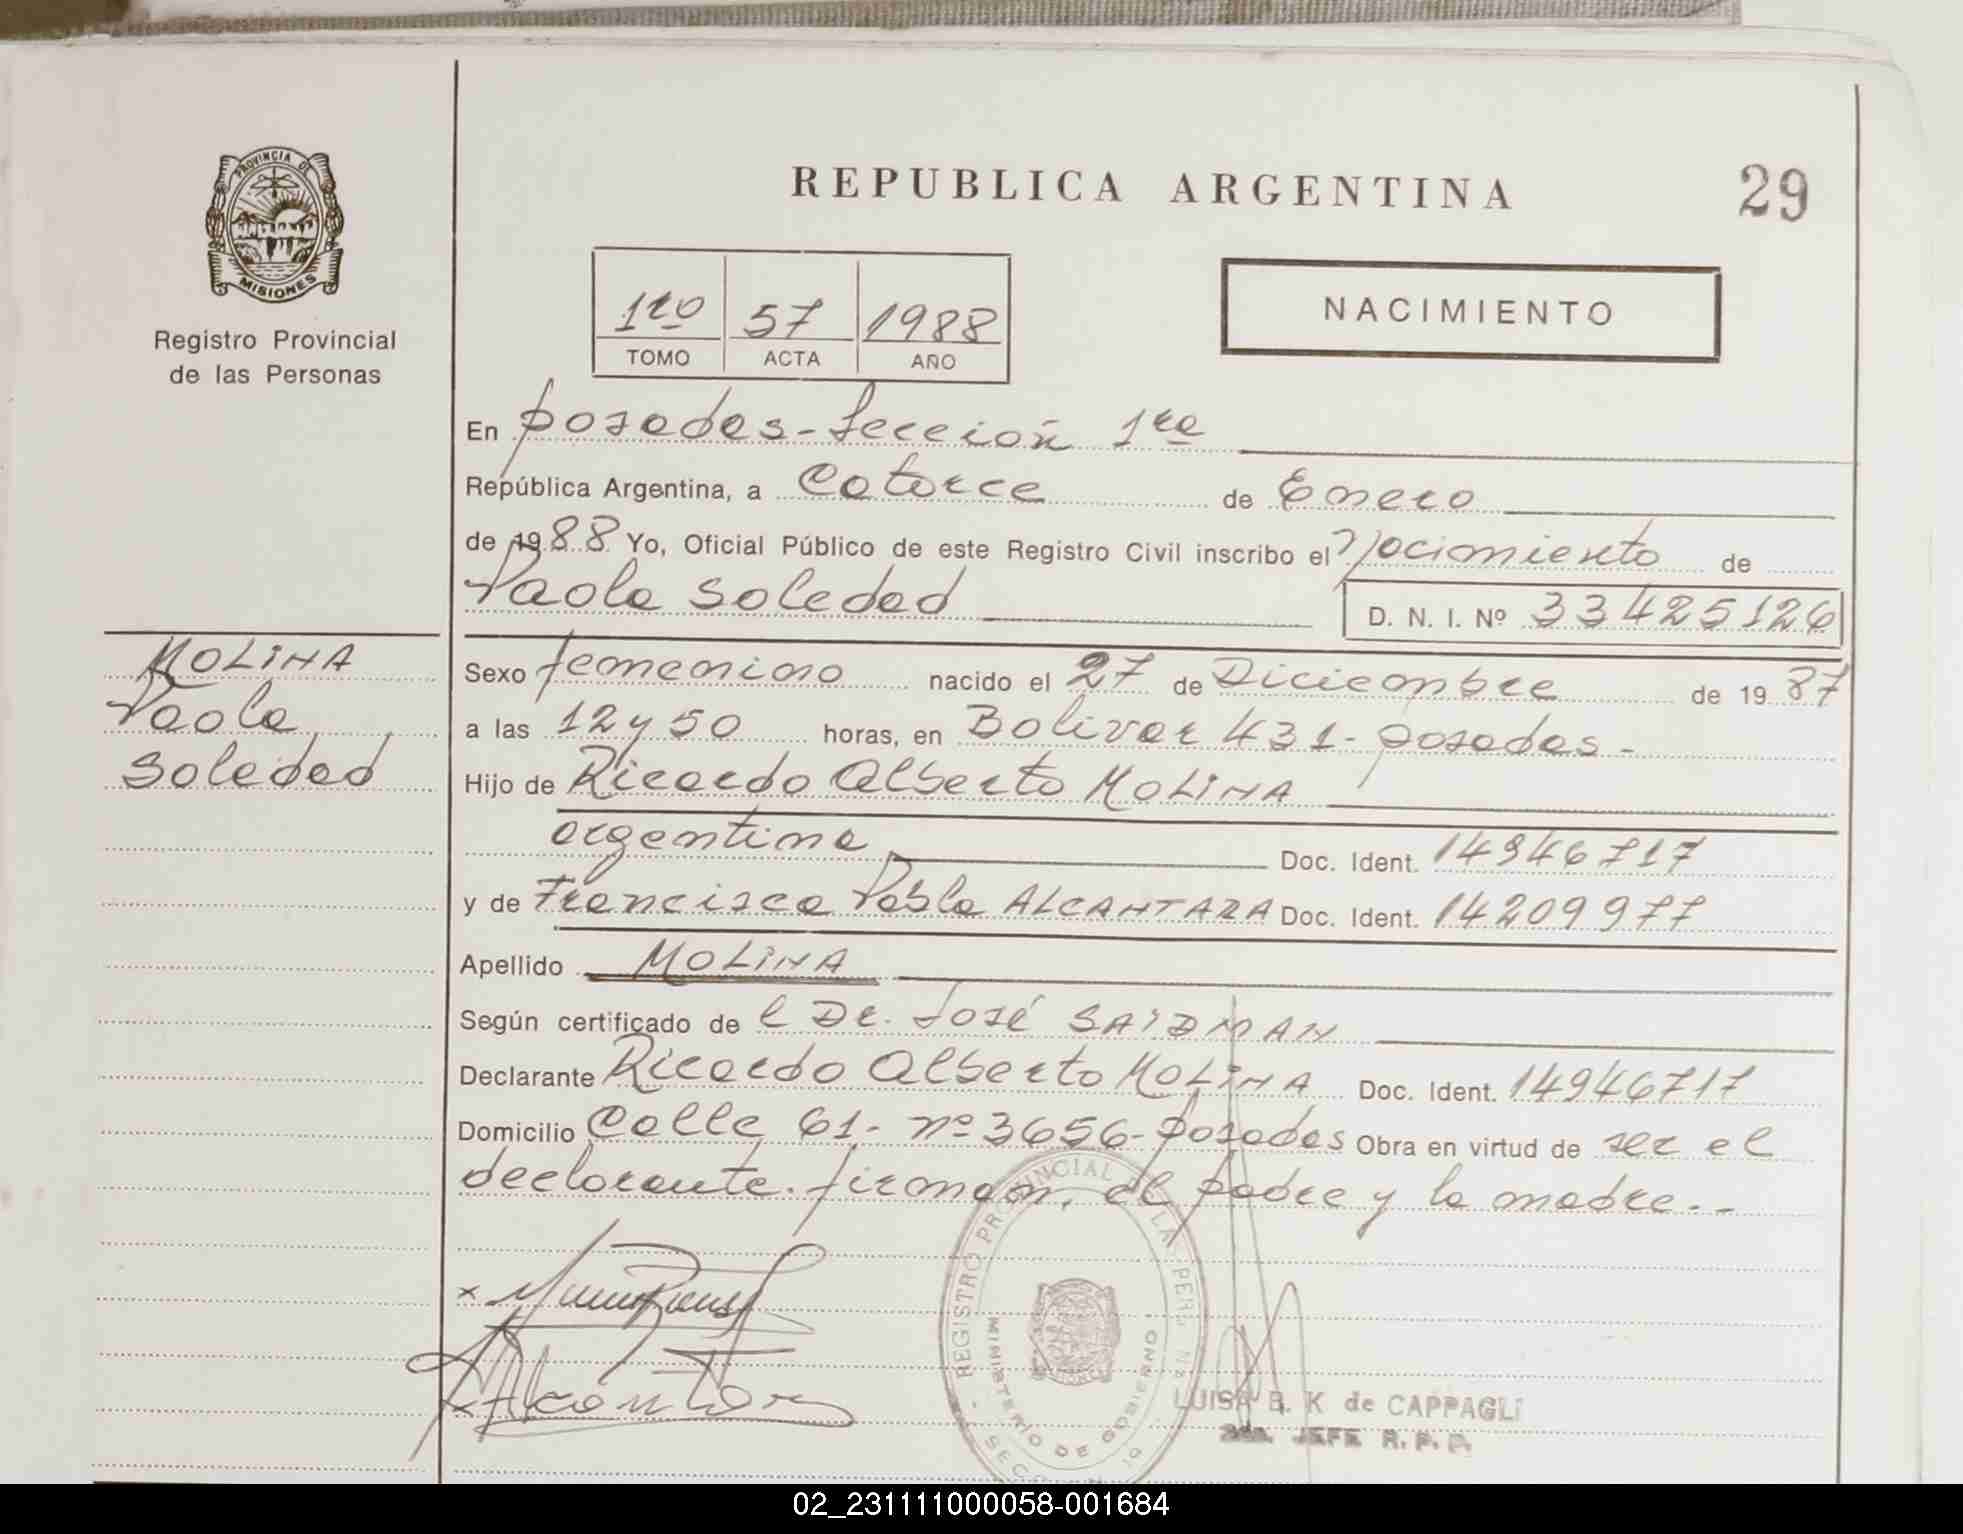 PROVINCIA DE
MISIONES
Registro Provincial
de las Personas
REPUBLICA ARGENTINA
29
1ro 57 1988
TOMO ACTA AÑO
NACIMIENTO
En posadas - Sección 1ra
República Argentina, a Catorce de Enero
de 1988 Yo, Oficial Público de este Registro Civil inscribo el Nacimiento de
Paola Soledad
D. N. I. Nº 33425126
MOLINA
Paola
Soledad
Sexo femenino nacido el 27 de Diciembre de 1987
a las 12 y 50 horas, en Bolivar 431 - posadas -
Hijo de Ricardo Alberto MOLINA
argentina Doc. Ident. 14946717
y de Francisca Pabla ALCANTARA Doc. Ident. 14209977
Apellido MOLINA
Según certificado de l Dr. José SAIDMAN
Declarante Ricardo Alberto MOLINA Doc. Ident. 14946717
Domicilio Calle 61 - nº 3656 - posadas Obra en virtud de ser el
declarante. firman, el padre y la madre. -
REGISTRO PROVINCIAL DE LAS PERSONAS
MINISTERIO DE GOBIERNO
LUISA B. K de CAPPAGLI
JEFE R. P. P.
02_231111000058-001684